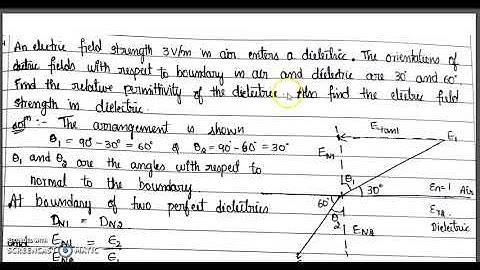 An electric field strength 3V/m in air enters a dielectric. The orientations of
electric fields with respect to boundary in air and dielectric are 30° and 60°.
Find the relative permittivity of the dielectric. Also find the electric field
strength in dielectric.
Solⁿ :- The arrangement is shown
θ1 = 90°-30° = 60° & θ2 = 90°-60° = 30°
θ1 and θ2 are the angles with respect to
normal to the boundary.
At boundary of two perfect dielectrics
DN1 = DN2
and EN1 = E2
EN2 = E1
Etan1
E1
EN1
θ1
30°
Er1 = 1 Air
60°
θ2
Er2
Dielectric
EN2
RECORDED WITH
SCREENCAST MATIC